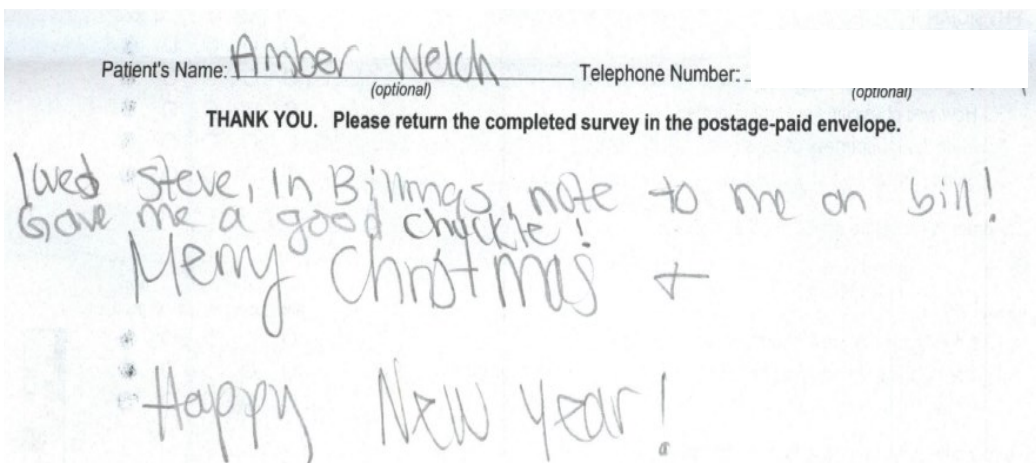 Patient's Name: Amber Welch Telephone Number:
(optional) (optional)
THANK YOU. Please return the completed survey in the postage-paid envelope.
loved Steve, In Billings, note to me on bill!
Gave me a good chuckle!
Merry Christmas +
Happy New Year!